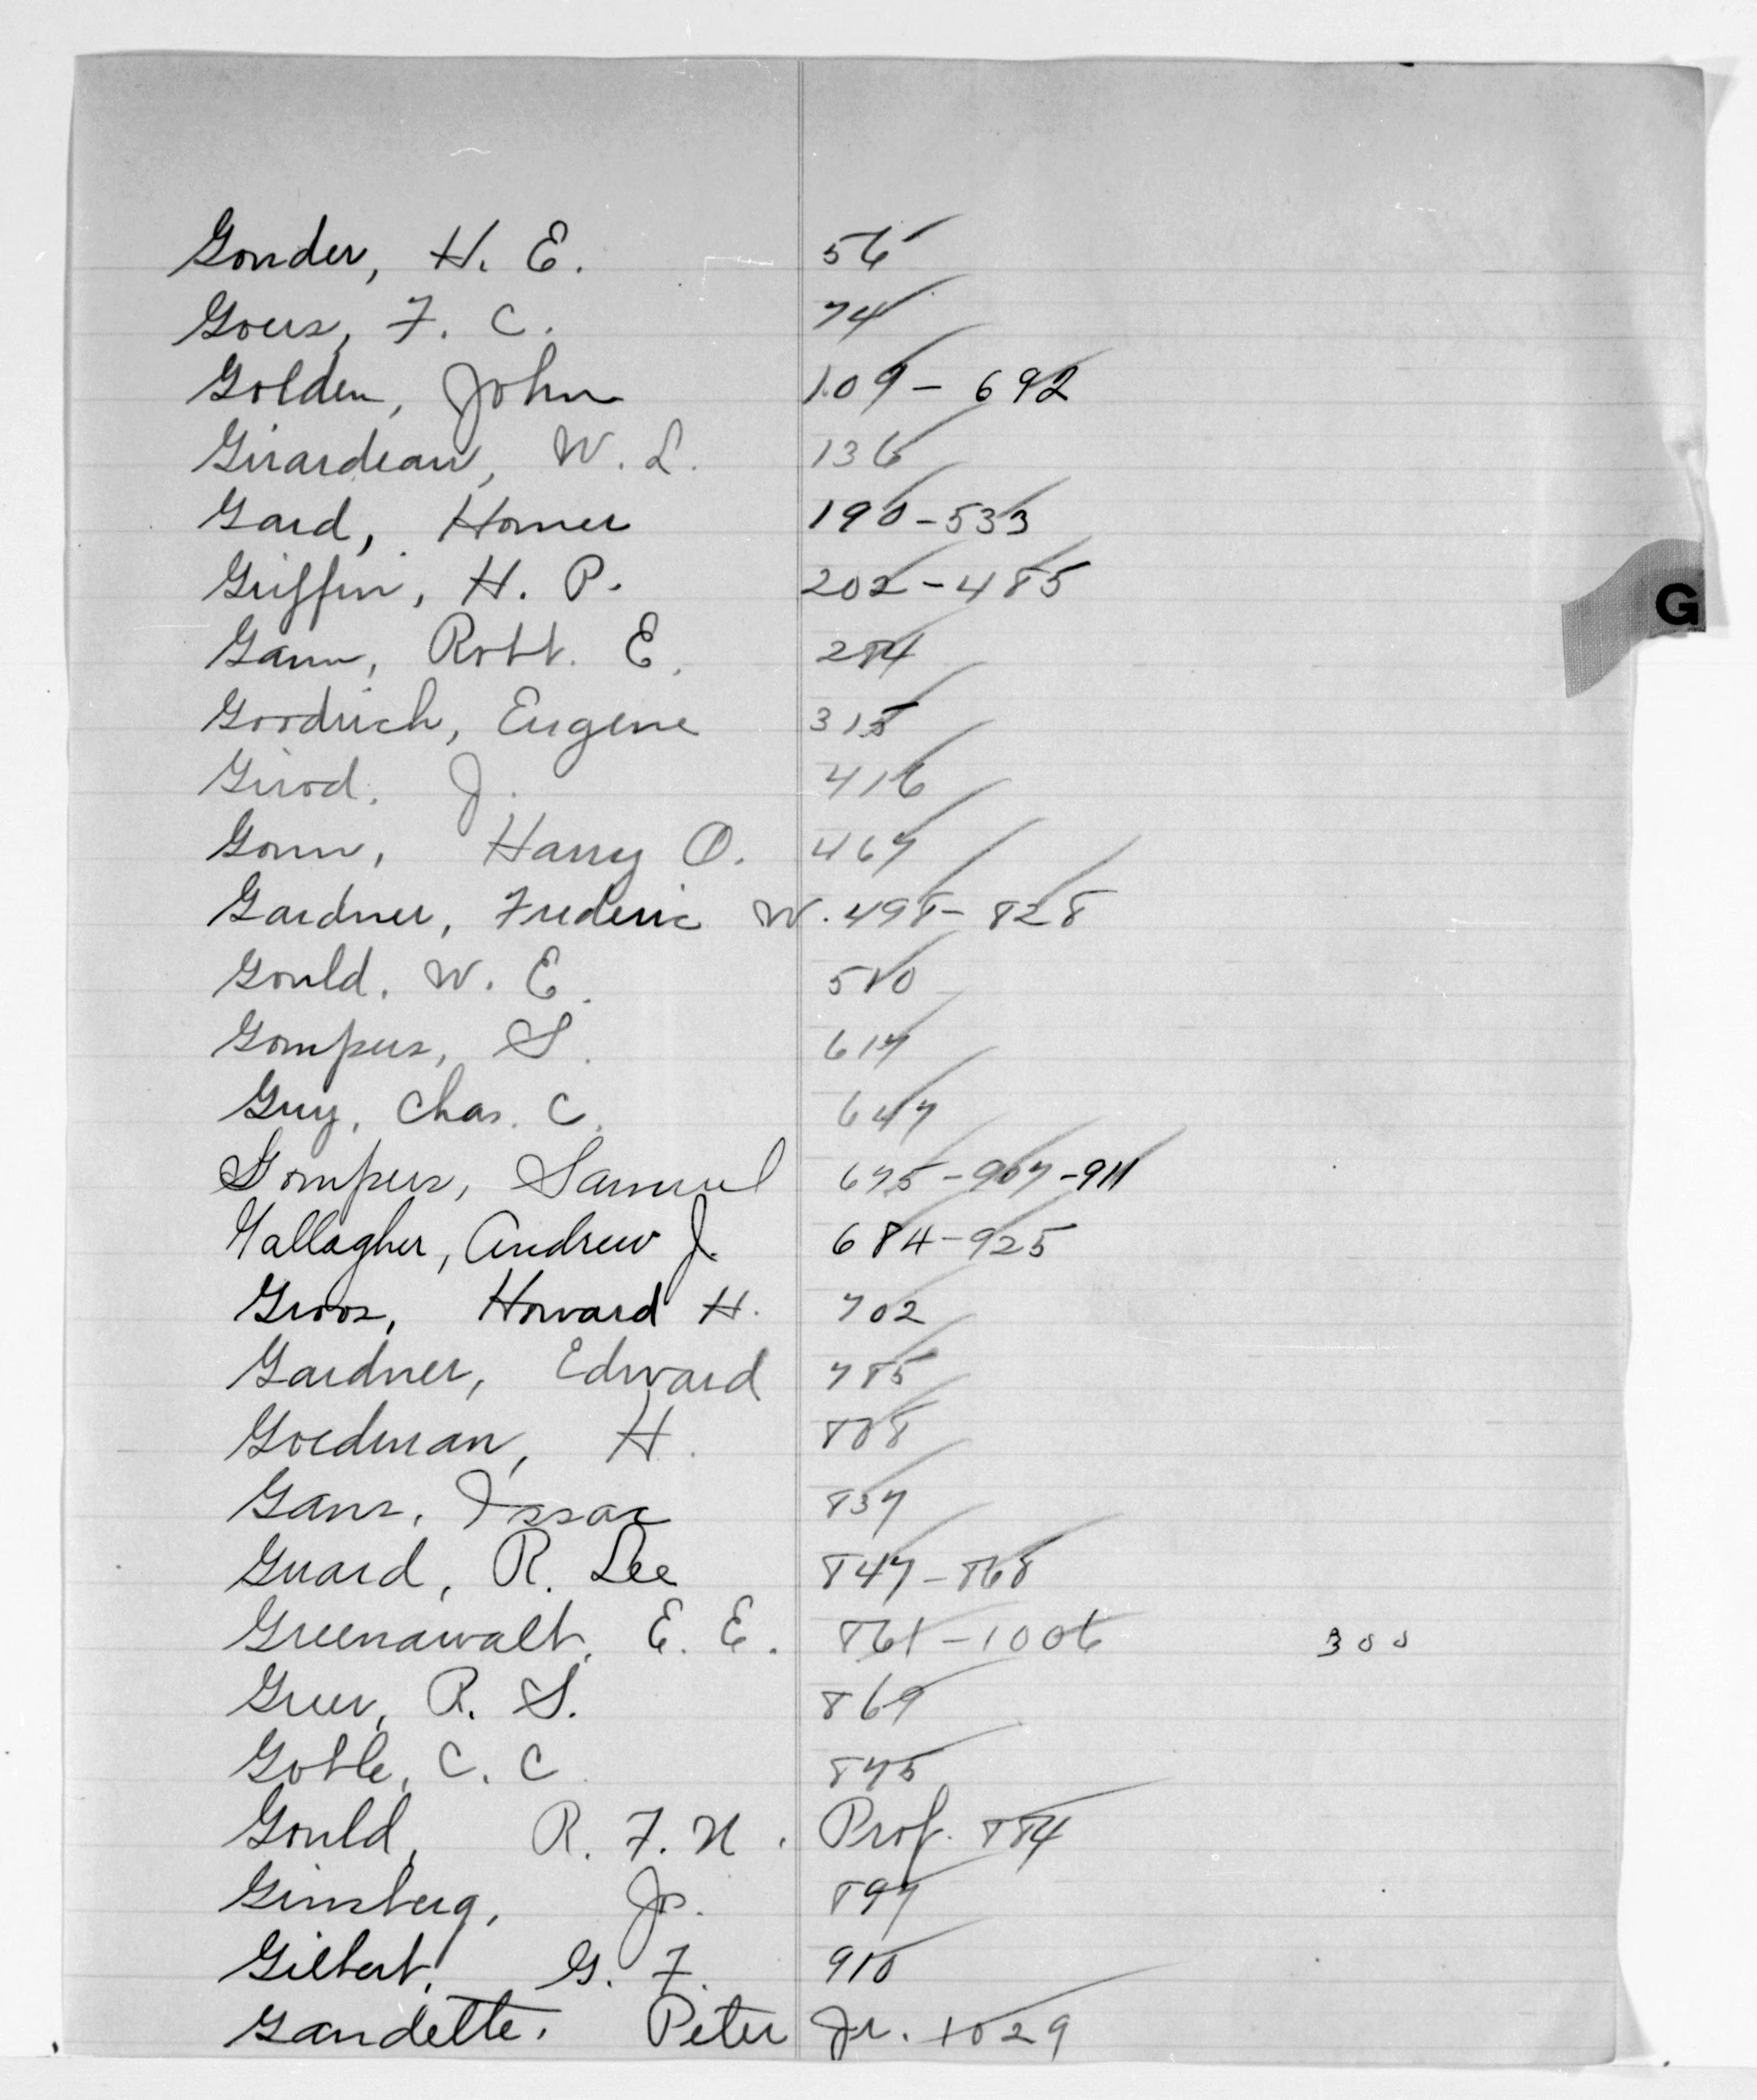 Gonder, H. E. 56
Goers, F. C. 74
Golden, John 109 - 692
Girardeau, W. L. 136
Gard, Homer 190 - 533
Griffin, H. P. 202 - 485
G
Gann, Robt. E. 284
Goodrich, Eugene 315
Girod, J. 416
Gonn, Harry O. 467
Gardner, Frederic W. 498 - 828
Gould, W. E. 510
Gompers, S. 617
Guy, Chas. C. 647
Gompers, Samuel 675 - 907 - 911
Gallagher, Andrew J. 684 - 925
Gross, Howard H. 702
Gardner, Edward 785
Goedman, H. 808
Gans, Issac 837
Guard, R. Lee 847 - 868
Greenawalt, E. E. 861 - 1006 300
Greer, R. S. 869
Goble, C. C. 875
Gould, R. F. N. Prof. 884
Ginsberg, Js. 897
Gilbert, G. F. 910
Gaudette, Peter Jr. 1029